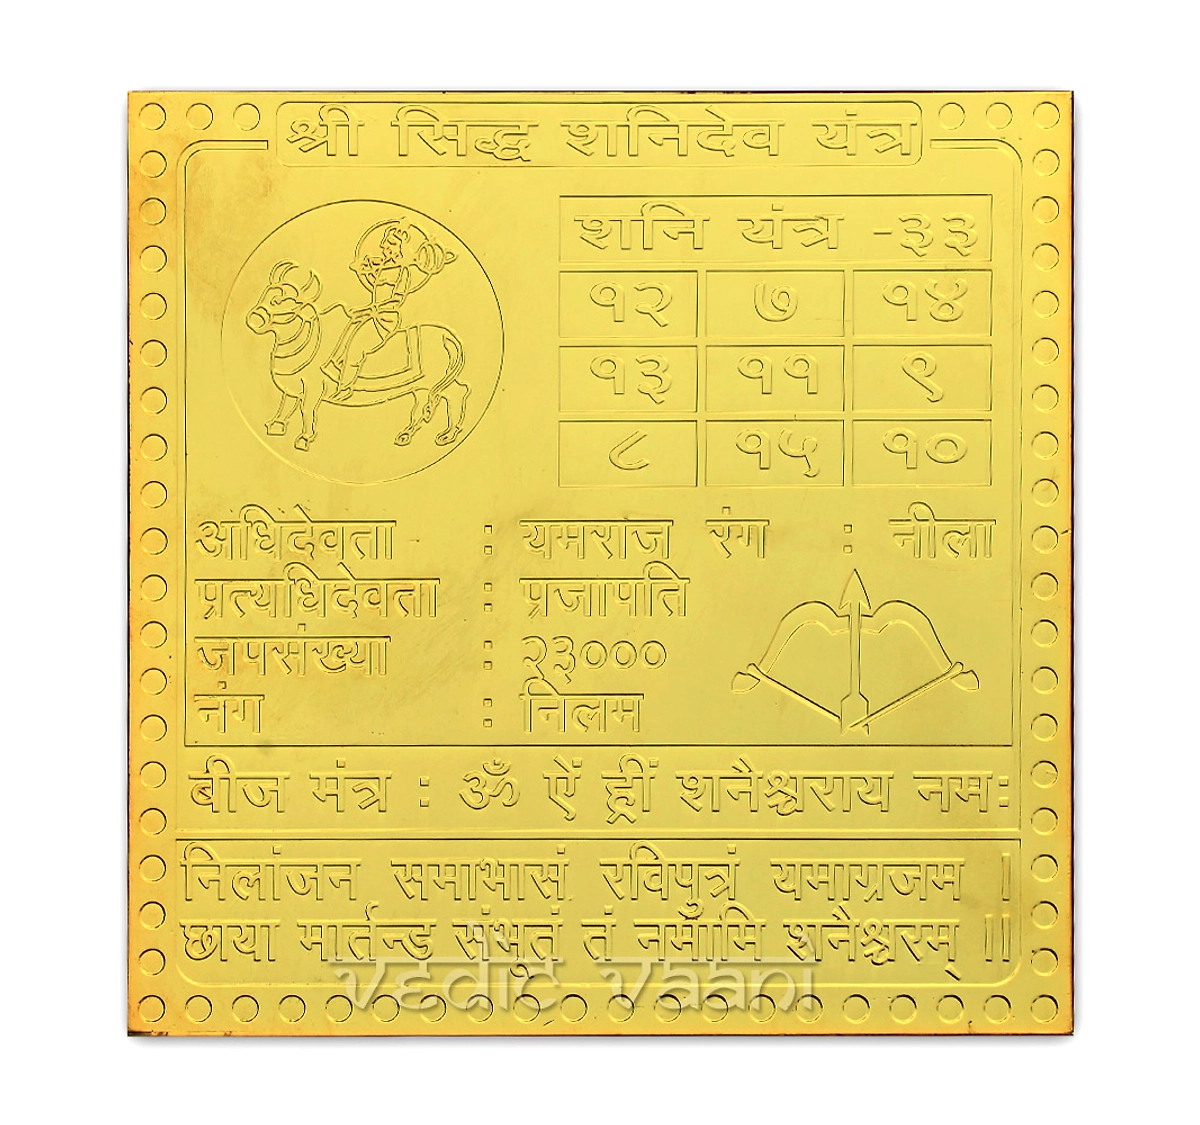 श्री सिद्ध शनिदेव यंत्र
शनि यंत्र -३३
१२ ७ १४
१३ ११ ९
८ १५ १०
अधिदेवता : यमराज रंग : नीला
प्रत्यधिदेवता : प्रजापति
जपसंख्या : २३०००
नंग : निलम
बीज मंत्र : ॐ ऐं ह्रीं शनैश्चराय नमः
निलांजन समाभासं रविपुत्रं यमाग्रजम ।
छाया मार्तन्ड संभूतं तं नमाँमि शनैश्चरम् ॥
vedic vaani